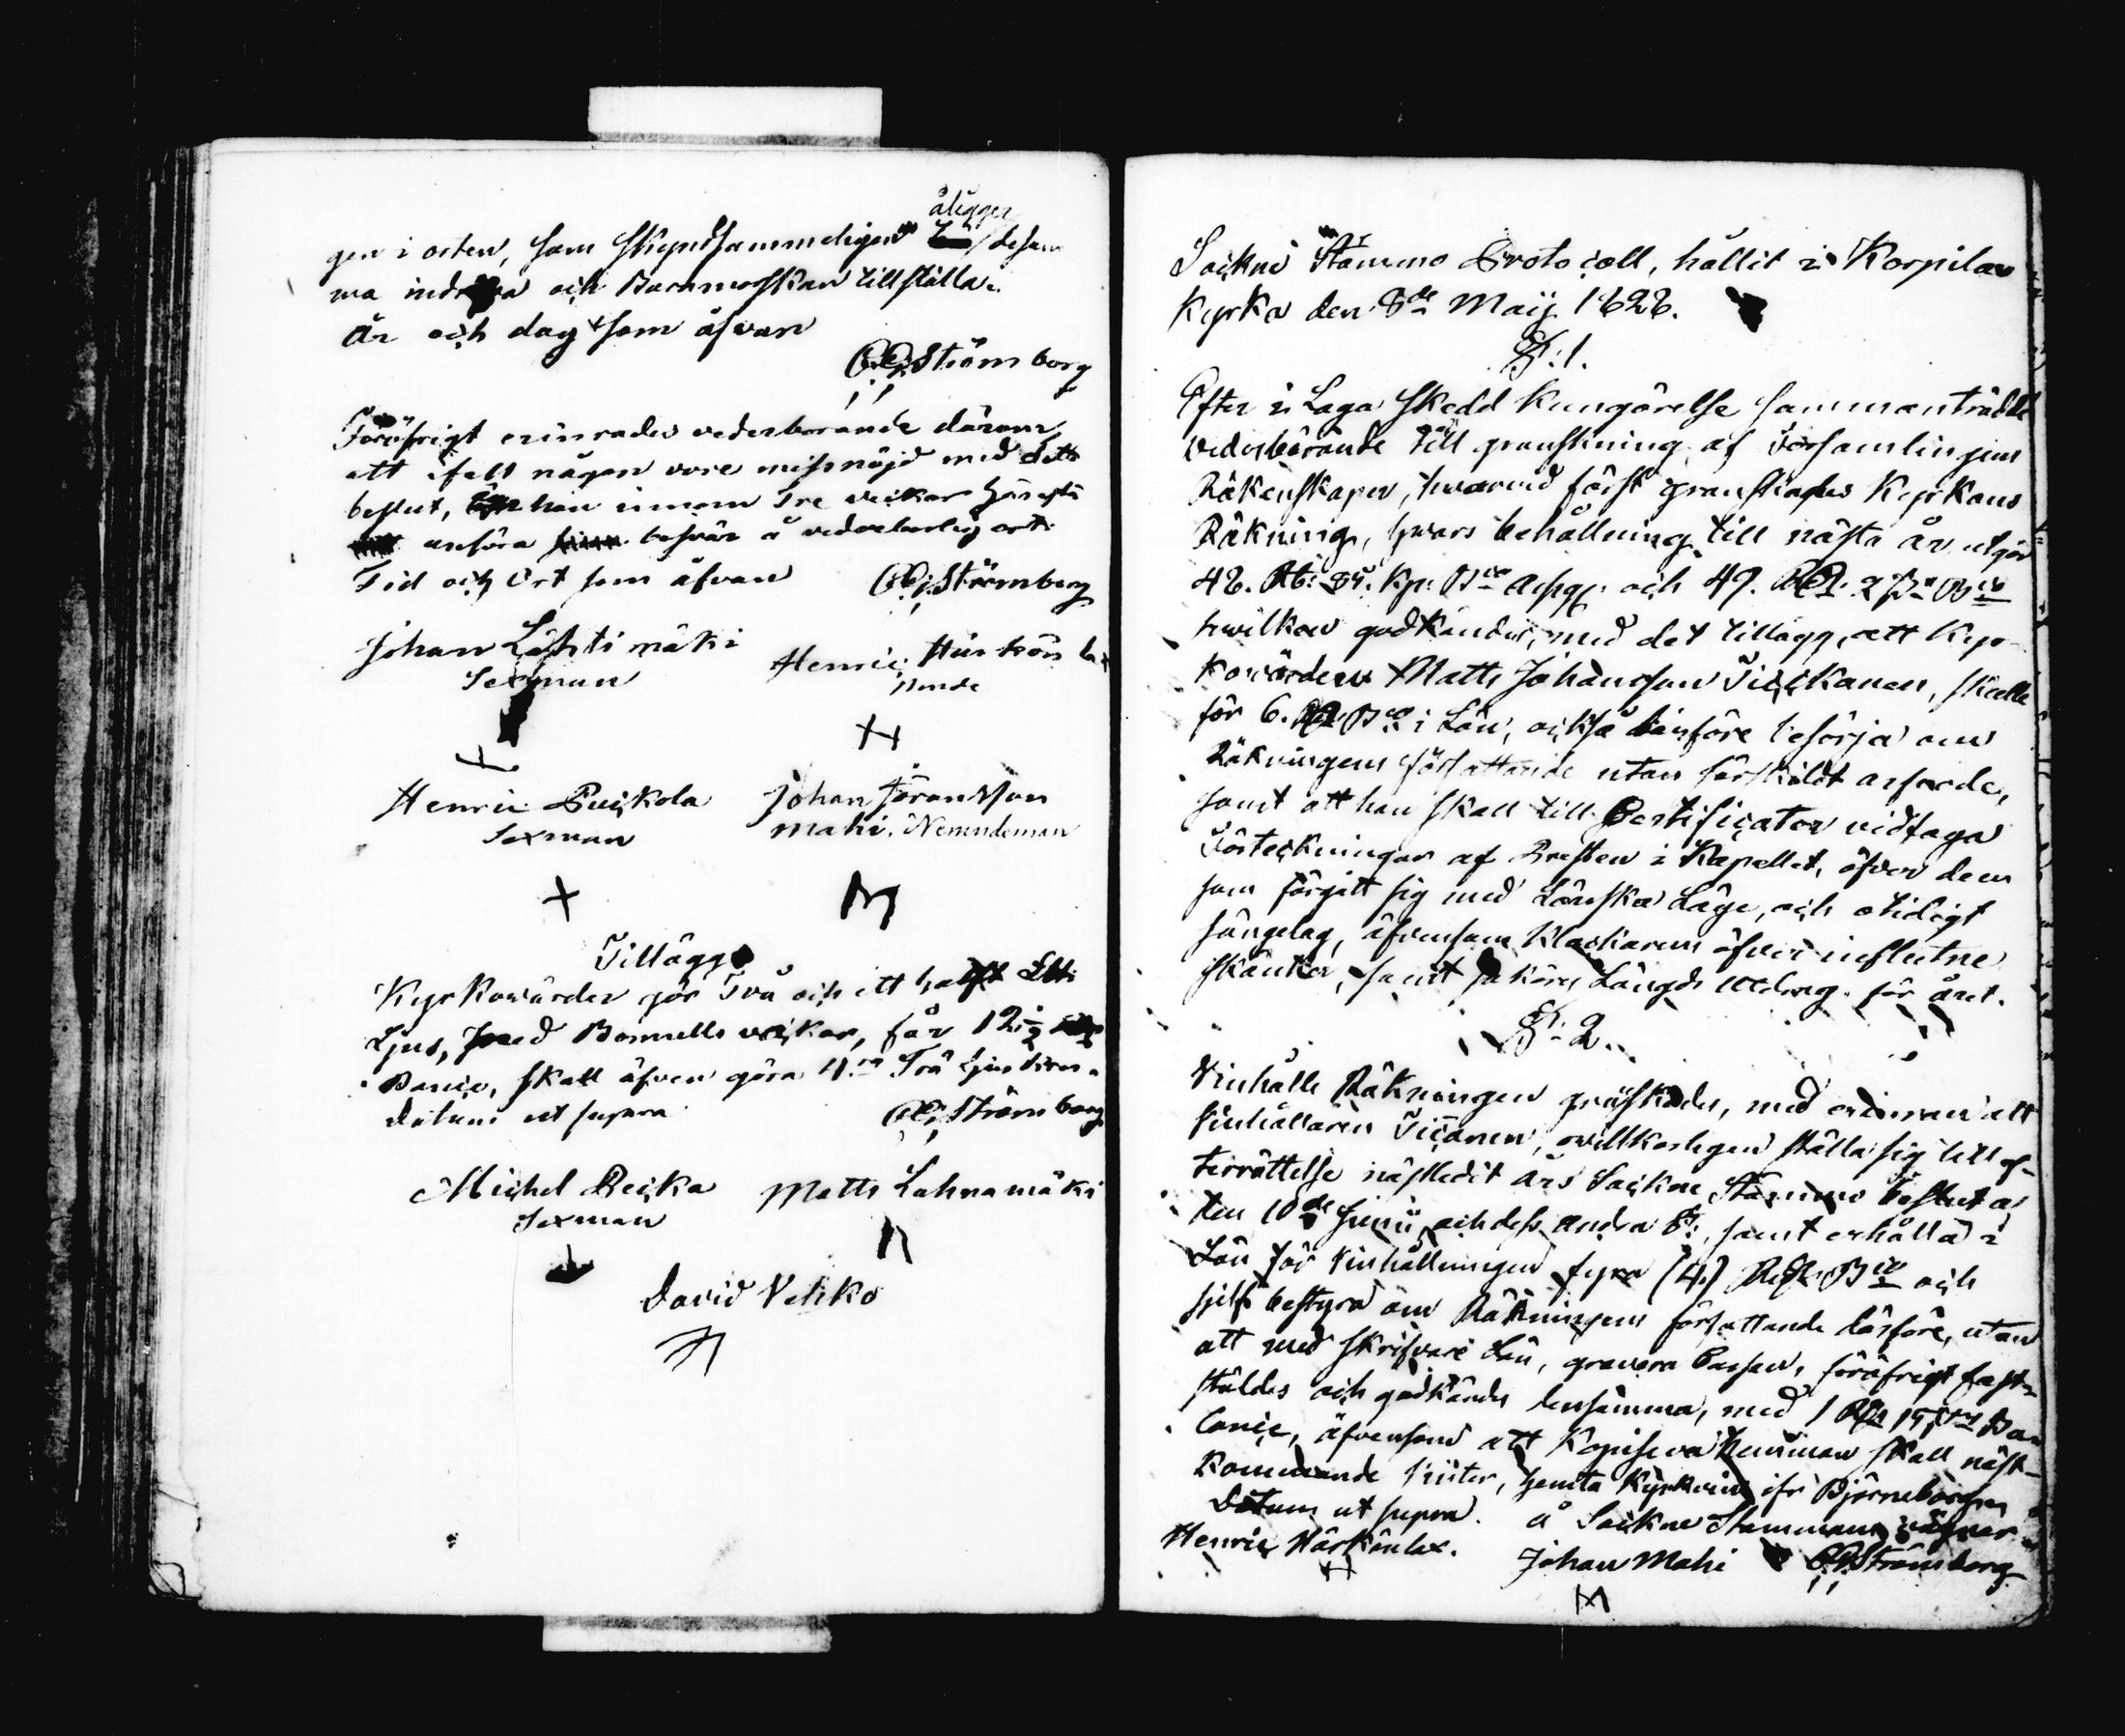 åligger
gen i orten, som skyndsammeligen desam
ma indrifva och Barnmorskan tillställa.
År och dag som ofvan
Strömborg
Föröfrigt erinrades vederbörande därom,
att ifall någon vore missnöjd med detta
beslut, han innom Tre veckor
anföra besvär å vederbörlig ort.
Tid och Ort som ofvan Strömborg
Johan Lähtimäki Henric Härkön
Sexman
Henric Puickola Johan Jöransson
Sexman Mahi. Nemndeman
Tillägg
Kyrkovärden gör Två och ett halft
Ljus, med Bomulls veckar, får 12½
Banco, skall äfven göra 4.ra Trä
datum ut supra Strömborg
Michel Reicka Matts Lahnamäki
Sexman
David Vehko
Sockne Stämmo Protocoll, hållit i Korpilax
Kyrka den 8de Maij 1828.
§: 1.
Efter i Laga skedd kungörelse sammanträdde
vederbörande till granskning af Församlingens
Räkenskaper, hvarvid först granskades Kyrkans
Räkning, hvars behållning till nästa år utgör
48. Rb: Kp: Bco Assgr. och 49.
hvilken godkändes, med det tillägg, att Kyr-
kovärden Matts Johansson Ticckanen, skulle
för 6. Bco i Lön, också härföre besörja om
Räkningens författande utan särskildt arfvode,
samt att han skall till Certificater vidtaga
Förteckningar af Presten i Kapellet, öfver dem
som förgått sig med Lönska Läge, och otidigt
sängelag, äfvensom Klockarens öfver influtne
skänker, samt Längds utdrag för året.
§: 2.
Vinhålls Räkningen granskades, med erinran att
Vinhållaren Ticcanen, ovillkorligen ställa sig till ef-
terrättelse nästledit års Sockne Stämmo beslut af
den 10de Junii och dess andra §:, samt erhålla i
Lön för Vinhållningen fyra (4.) Bco och
sjelf bestyra om Räkningens författande därföre, utan
att med skrifvare Lön, gravera Cassan, föröfrigt fast-
stäldes och godkändes densamma, med 1 Ban
Conic, äfvensom att hemman skall näst-
kommande Vinter, hemta Kyrkovin ifr Björneborg
Datum ut supra. å Sockne Stämmans vägnar
Henric Härkönlax. Johan Mahi Strömborg